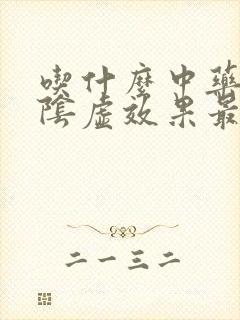 喫什麼中藥
陰虛效果最
二一三二